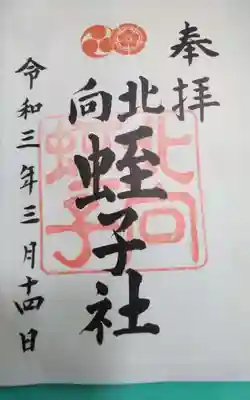 奉拝
北向
蛭子社
令和三年三月十四日
北向
蛭子